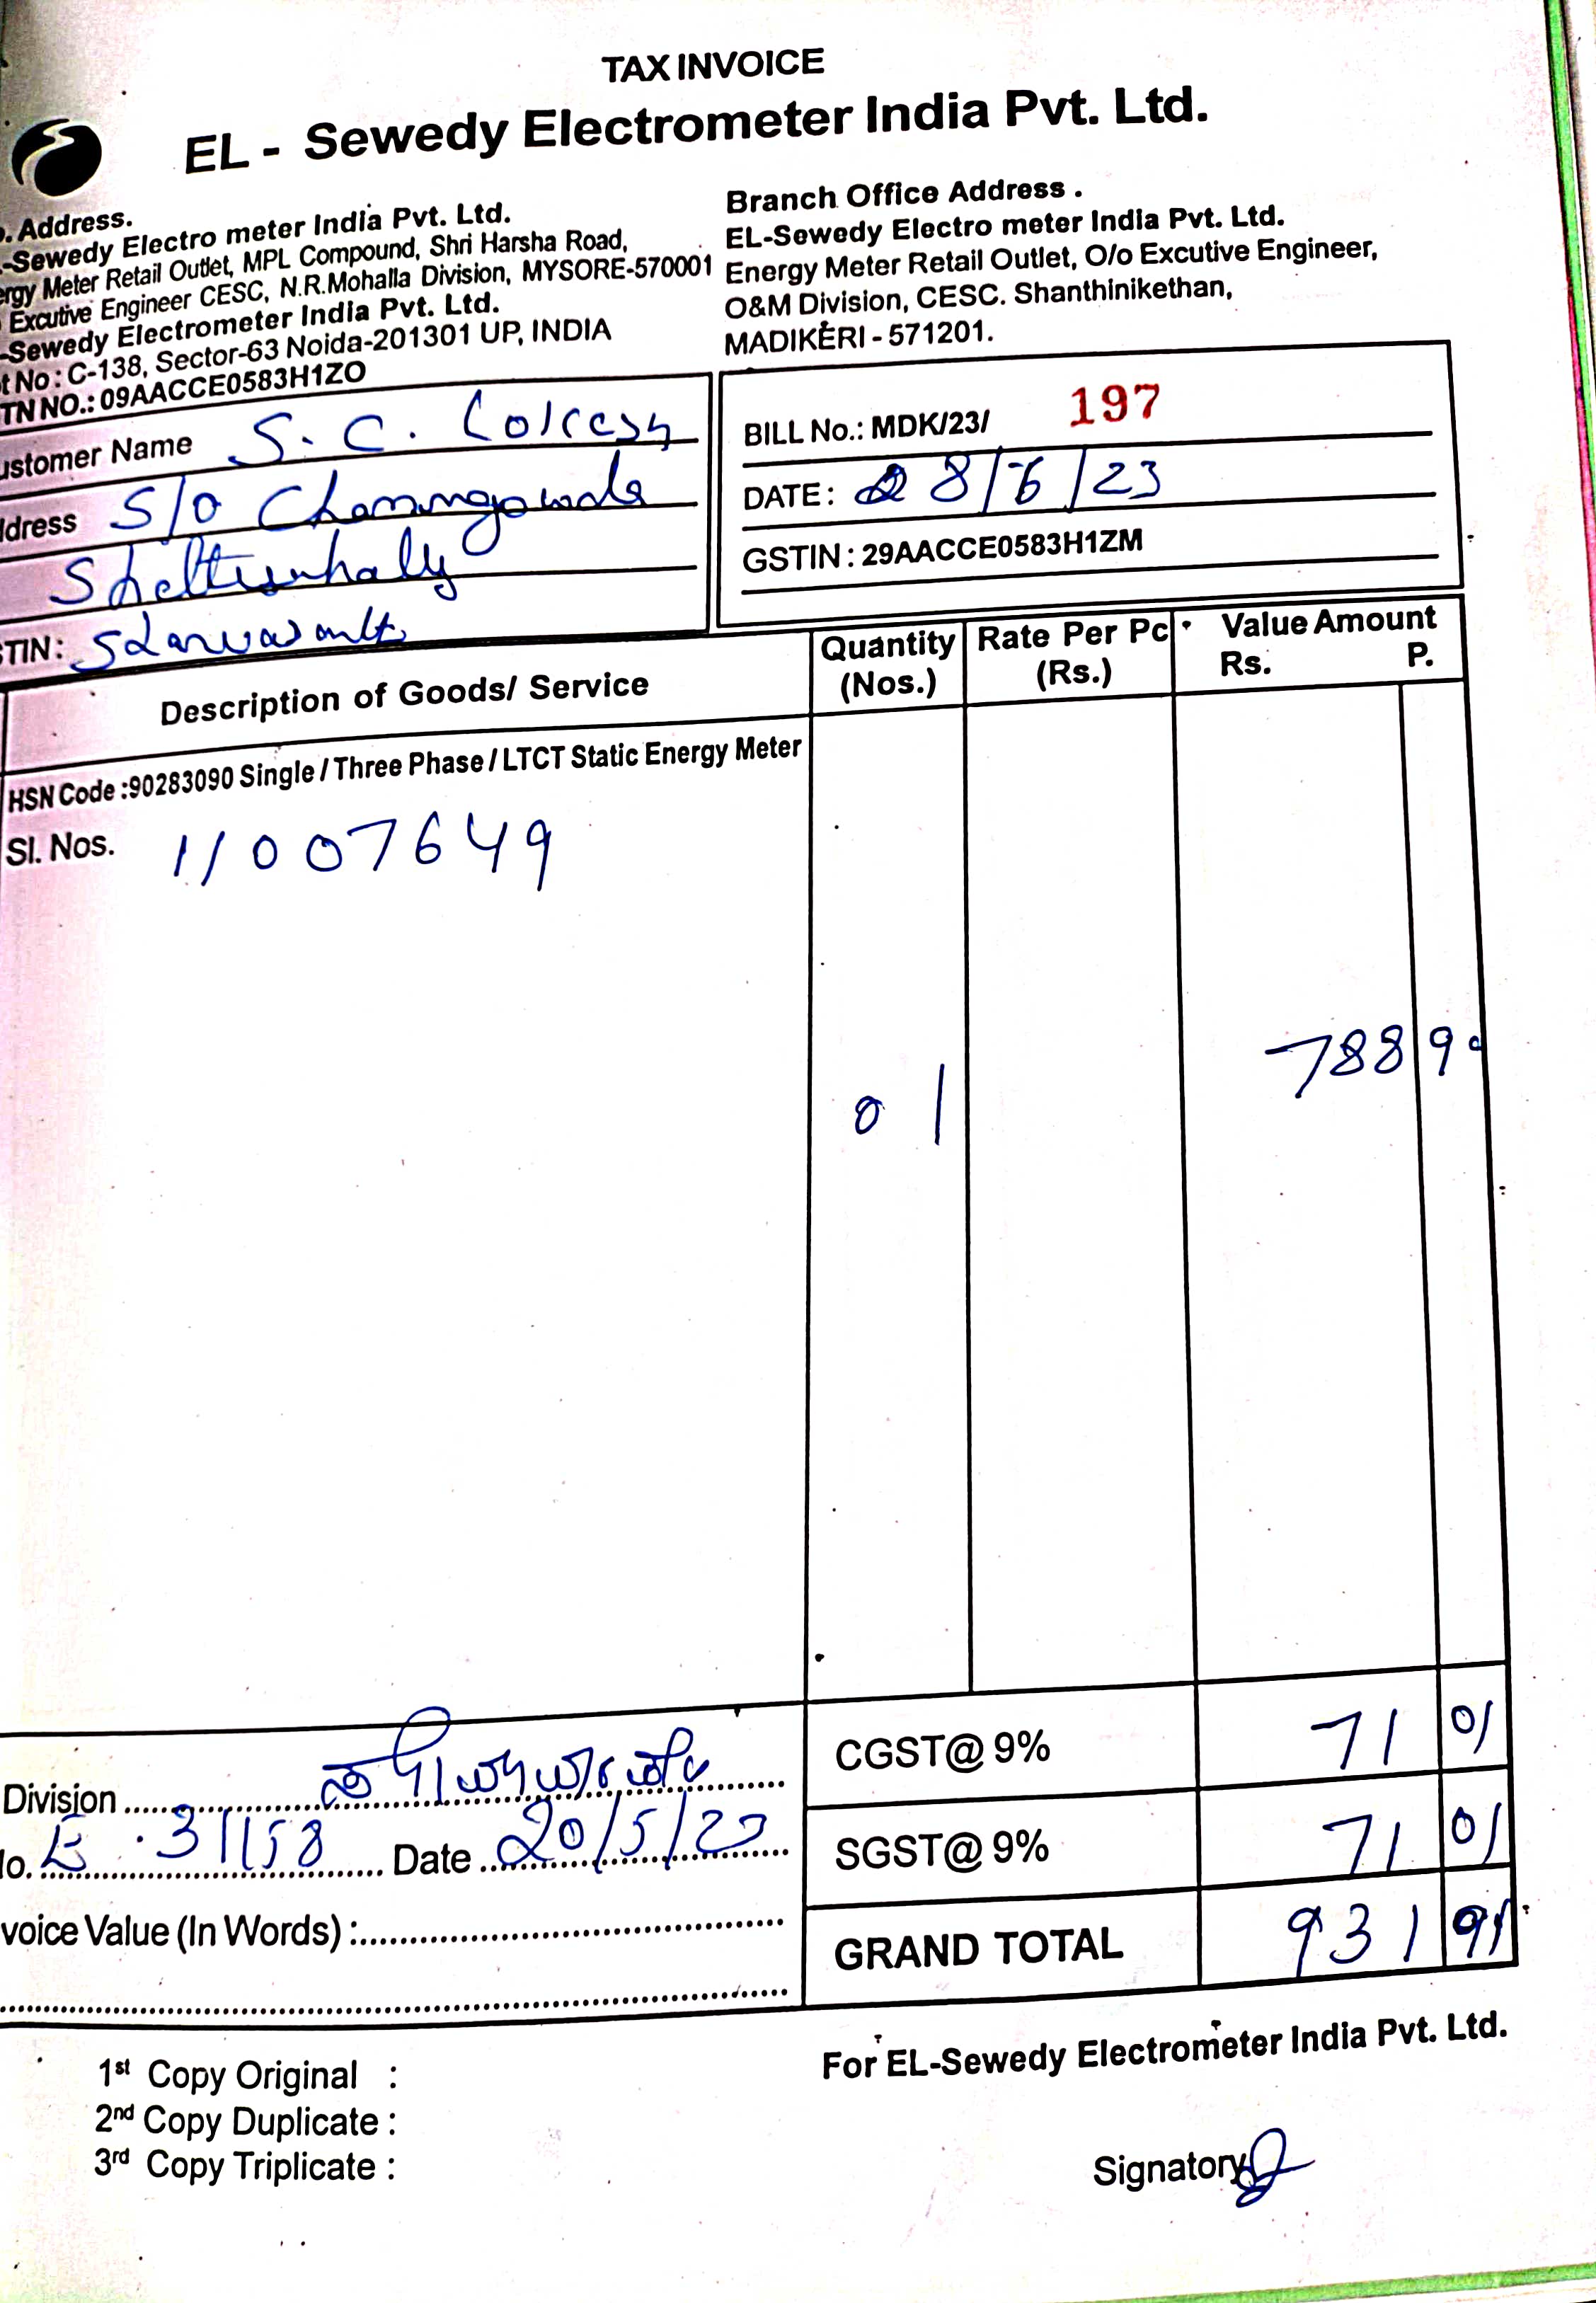 TAX INVOICE
EL - Sewedy Electrometer India Pvt. Ltd.
. Address.
-Sewedy Electro meter India Pvt. Ltd.
rgy Meter Retail Outlet, MPL Compound, Shri Harsha Road,
Excutive Engineer CESC, N.R.Mohalla Division, MYSORE-570001
-Sewedy Electrometer India Pvt. Ltd.
t No : C-138, Sector-63 Noida-201301 UP, INDIA
TN NO.: 09AACCE0583H1ZO
Branch Office Address .
EL-Sewedy Electro meter India Pvt. Ltd.
Energy Meter Retail Outlet, O/o Excutive Engineer,
O&M Division, CESC. Shanthinikethan,
MADIKERI - 571201.
ustomer Name S. C.
dress S/o
TIN:
BILL No.: MDK/23/ 197
DATE : 28/6/23
GSTIN : 29AACCE0583H1ZM
Description of Goods/ Service
Quantity (Nos.)
Rate Per Pc (Rs.)
Value Amount
Rs. P.
HSN Code :90283090 Single / Three Phase / LTCT Static Energy Meter
Sl. Nos. 11007649
01 788 90
CGST@ 9% 71 01
SGST@ 9% 71 01
GRAND TOTAL 931 91
Division
lo. 31158 Date 20/5/23
voice Value (In Words) :
For EL-Sewedy Electrometer India Pvt. Ltd.
1st Copy Original :
2nd Copy Duplicate :
3rd Copy Triplicate :
Signatory